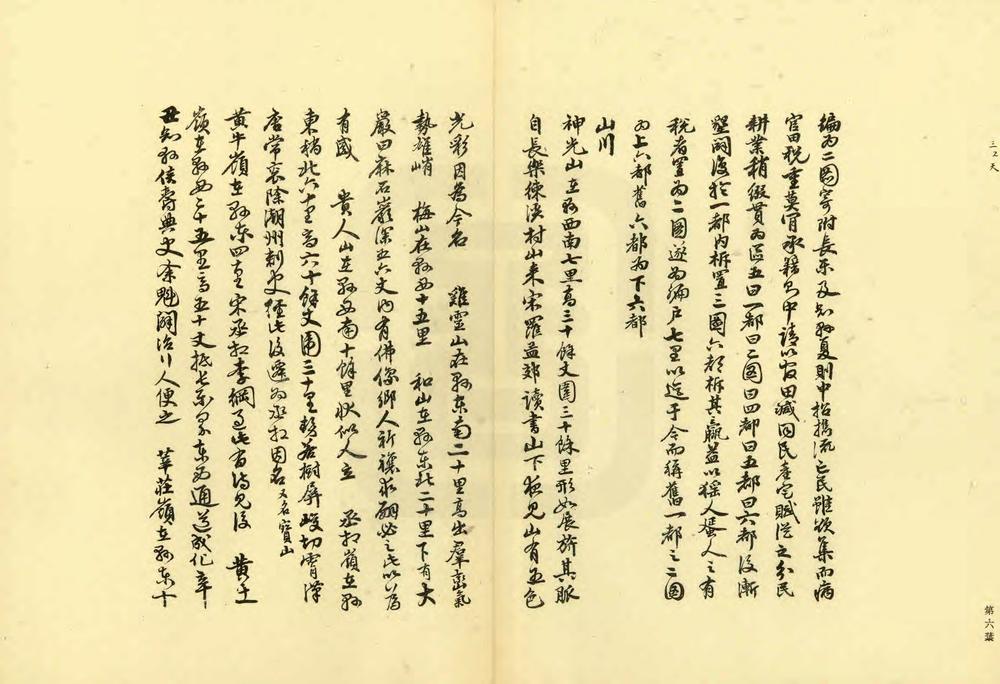 編為二圖寄附長樂及知縣夏則中招攜流亡民雖欲集而病
官田稅重莫肯承籍則中請以官田減同民產定賦從之分民
耕業稍復貫為區五曰一都曰二圖曰四都曰五都曰六都後漸
墾闢復於一都內柝置三圖六都柝其羸益以猺人蜑人之有
稅者置為二圖遂為編戶七里以迄于今而稱舊一都之二圖
為上六都舊六都為下六都
山川
神光山在縣西南七里高三十餘丈圍三十餘里形如展旂其脈
自長樂練溪村山来宋羅孟郊讀書山下夜見山有五色
光彩因為今名 雞靈山在縣東南二十里高出羣巒氣
勢雄峭 梅山在縣西十五里 和山在縣東北二十里下有大
巖曰麻石巖深五六丈內有佛像鄉人祈禳求嗣必之此以為
有感 貴人山在縣西南十餘里狀似人立 丞相嶺在縣
東稍北六十里高六十餘丈圍三十里形若樹屏峻切霄漢
唐常袞除潮州刺史經此後遷為丞相因名又名寶山
黃牛嶺在縣東四十里宋丞相李綱過此有詩見後 黃土
嶺在縣西二十五里高五十丈抵長樂界東西通道成化辛
丑知縣侯爵典史余魁闢治行人便之 華莊嶺在縣東十
第六葉